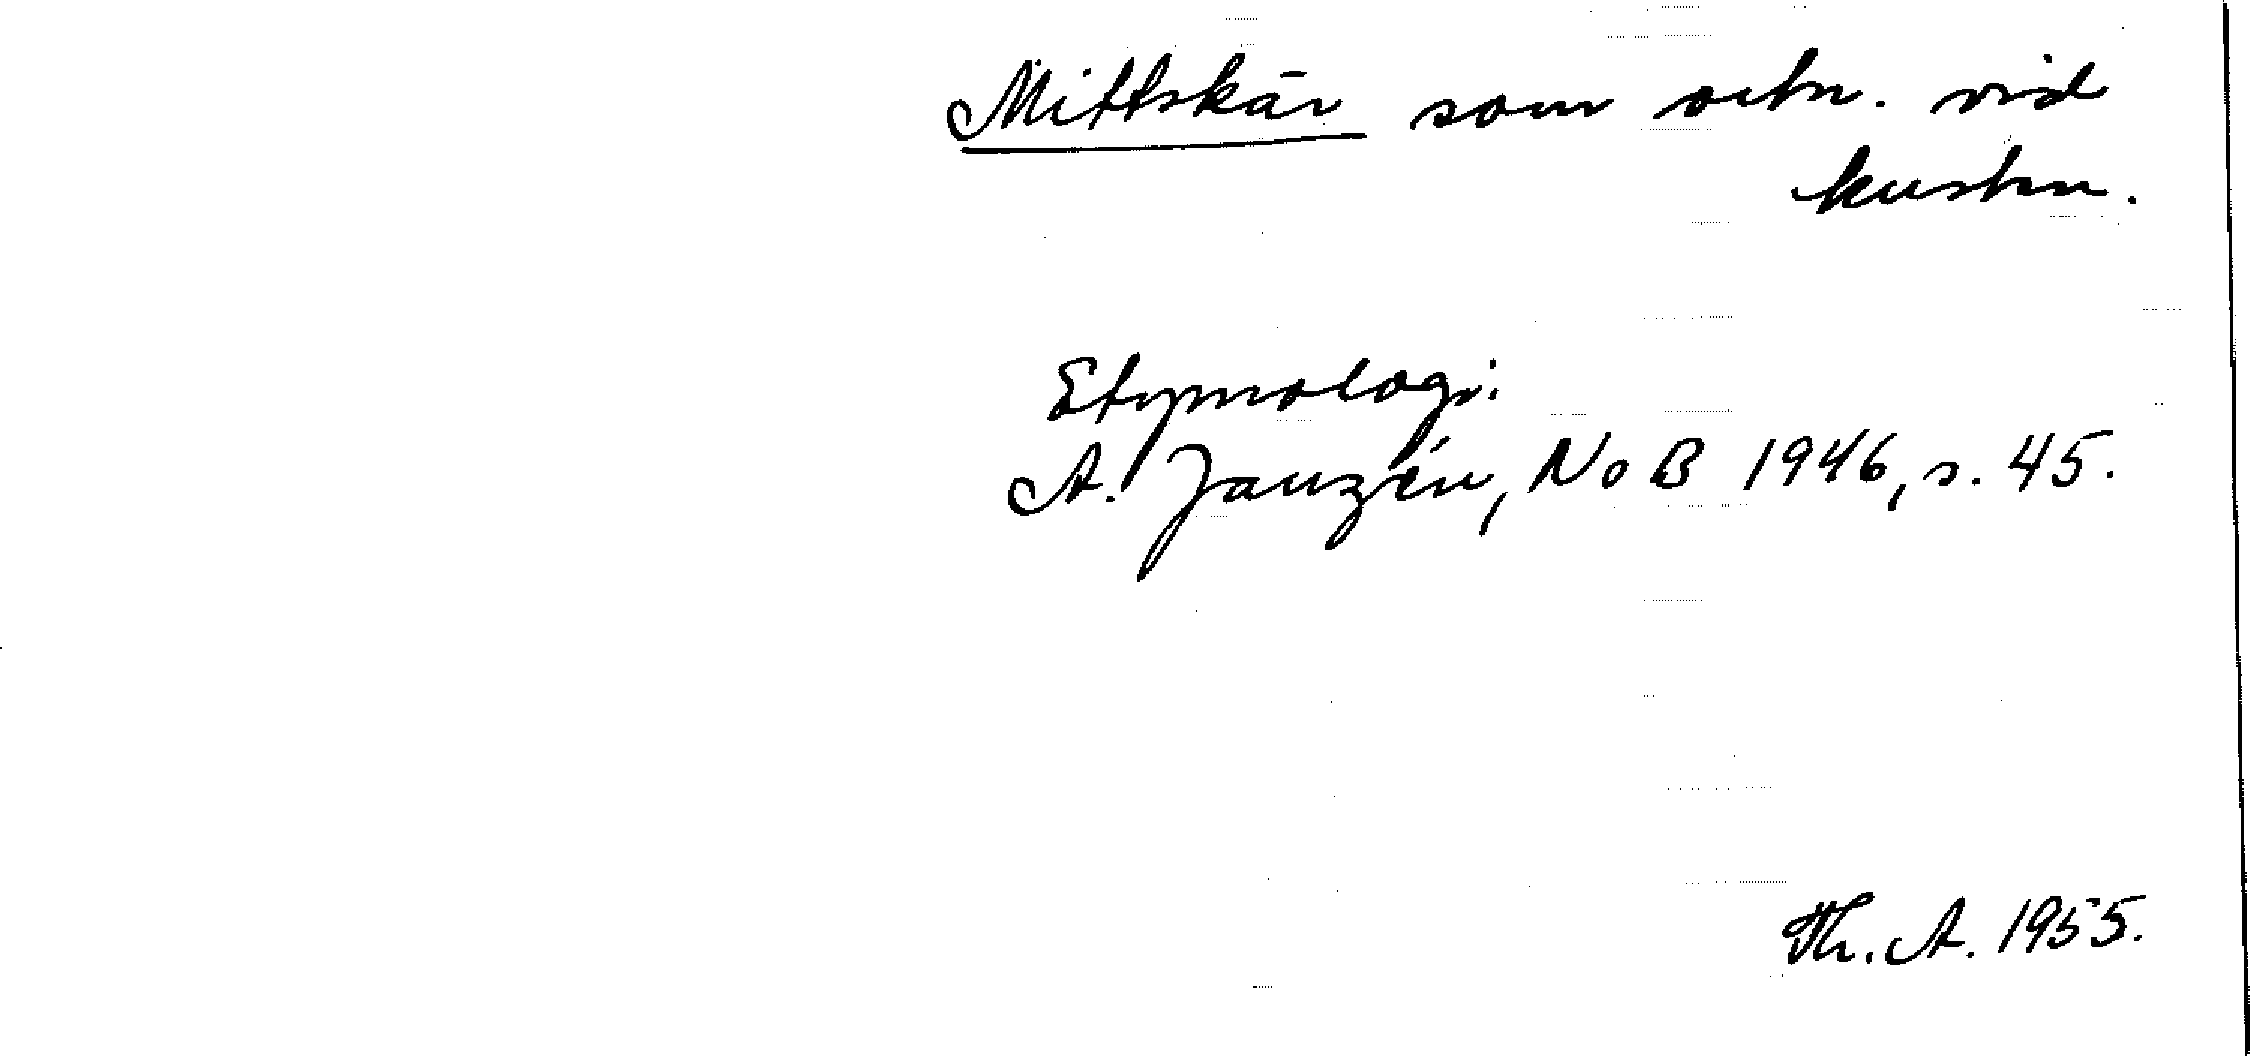 Mittskär som ortn. vid
kusten.
Etymologi:
A. Janzén, NoB 1946, s. 45.
Th. A. 1955.